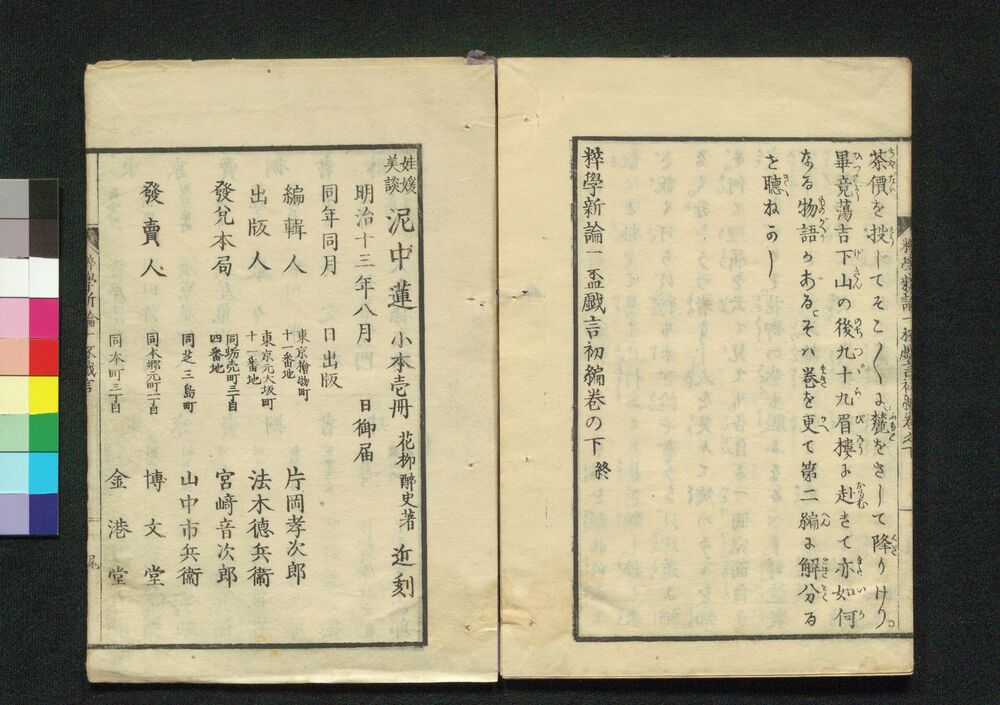 茶價を投じてそこ〳〵に麓をさして降りけり
畢竟蕩吉下山の後九十九眉樓に赴きて亦如何
なる物語かあるそハ巻を更て第二編に解分る
を聴ねかし
粹學新論一盃戯言初編巻の下 終
娃媛美談 泥中蓮 小本壱冊 花柳醉史著 近刻
明治十三年八月 日御届
同年同月 日出版
編輯人 東京檜物町十一番地 片岡孝次郎
出版人 東京元大坂町十一番地 法木徳兵衞
發兌本局 同蛎壳町三丁目四番地 宮﨑音次郎
發賣人 同芝三島町 山中市兵衞
同本郷元町一丁目 博文堂
同本町三丁目 金港堂